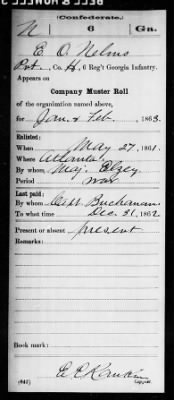 (Confederate.)
N 6 Ga.
E. O. Nelms
Pvt., Co. H, 6 Reg't Georgia Infantry.
Appears on
Company Muster Roll
of the organization named above,
for Jan. & Feb., 1863.
Enlisted:
When May 27, 1861.
Where Atlanta
By whom Maj. Elzey
Period war
Last paid:
By whom Capt. Buchanan
To what time Dec. 31, 1862
Present or absent present
Remarks:
Book mark:
(642) Copyist.